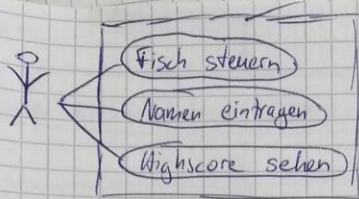 Fisch steuern
Namen eintragen
Highscore sehen